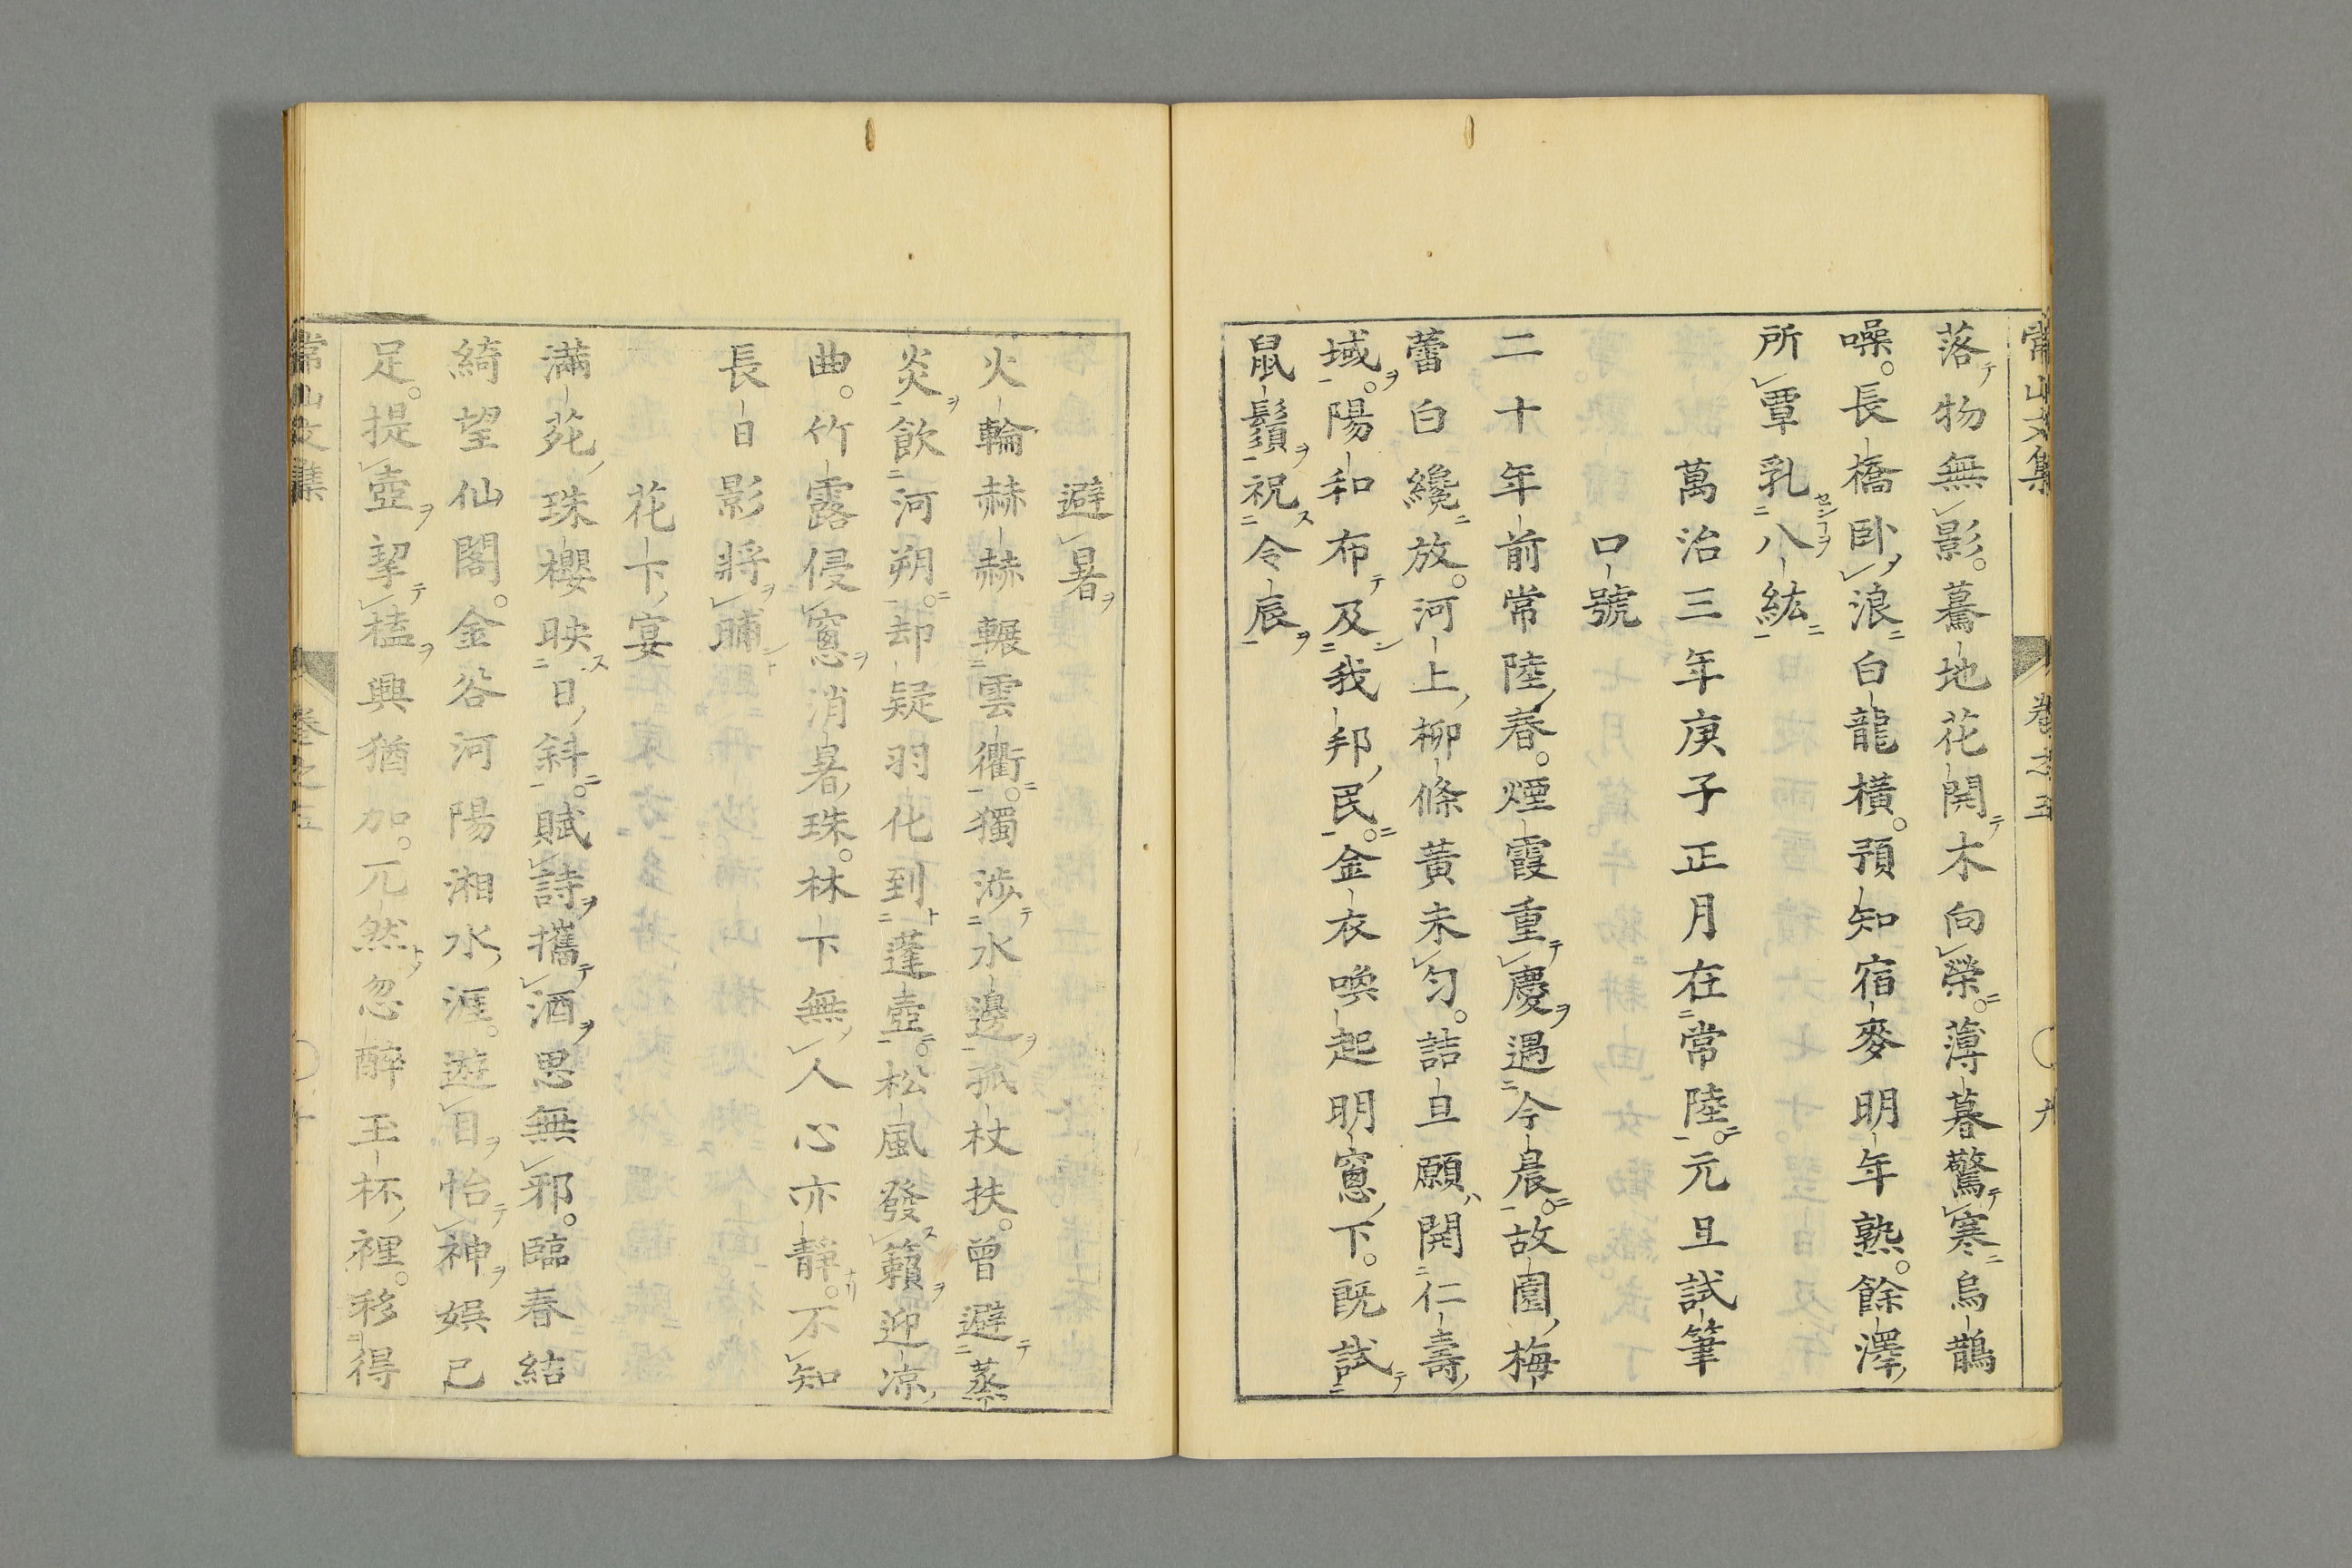 常山文集 卷之五 〇 九
落物無影。驀地花開木向榮。薄暮驚寒烏鵲
噪。長橋臥浪白龍橫。預知宿麥明年熟。餘澤
所覃乳八紘
萬治三年庚子正月在常陸。元旦試筆
口號
二十年前常陸春。煙霞重慶遇今晨。故園梅
蕾白纔放。河上柳條黃未匀。詰旦願開仁壽
域。陽和布及我邦民。金衣喚起明窓下。既試
鼠鬚祝令辰
避暑
火輪赫赫輾雲衢。獨涉水邊孤杖扶。曾避蒸
炎飲河朔。却疑羽化到蓬壺。松風發籟迎涼
曲。竹露侵窓消暑珠。林下無人心亦靜。不知
長日影將晡
花下宴
滿苑珠櫻映日斜。賦詩攜酒思無邪。臨春結
綺望仙閣。金谷河陽湘水涯。遊目怡神娯已
足。提壺挈榼興猶加。兀然忽醉玉杯裡。移得
常山文集 卷之五 〇 十